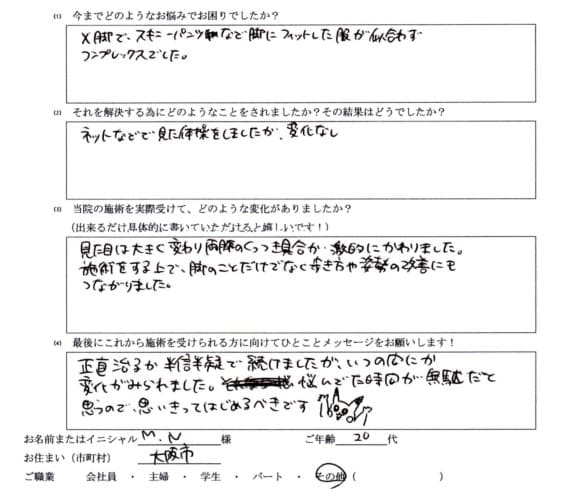 (1) 今までどのようなお悩みでお困りでしたか?
X脚で、スキニーパンツなど脚にフィットした服が似合わず
コンプレックスでした。
(2) それを解決する為にどのようなことをされましたか?その結果はどうでしたか?
ネットなどで見た体操をしましたが、変化なし
(3) 当院の施術を実際受けて、どのような変化がありましたか?
(出来るだけ具体的に書いていただけると嬉しいです!)
見た目は大きく変わり両膝のくっつき具合が激的にかわりました。
施術をする上で、脚のことだけでなく歩き方や姿勢の改善にも
つながりました。
(4) 最後にこれから施術を受けられる方に向けてひとことメッセージをお願いします!
正直治るか半信半疑で続けましたが、いつの間にか
変化がみられました。悩んでた時間が無駄だと
思うので、思いきってはじめるべきです
お名前またはイニシャル M.N 様 ご年齢 20 代
お住まい(市町村) 大阪市
ご職業 会社員・主婦・学生・パート・その他( )